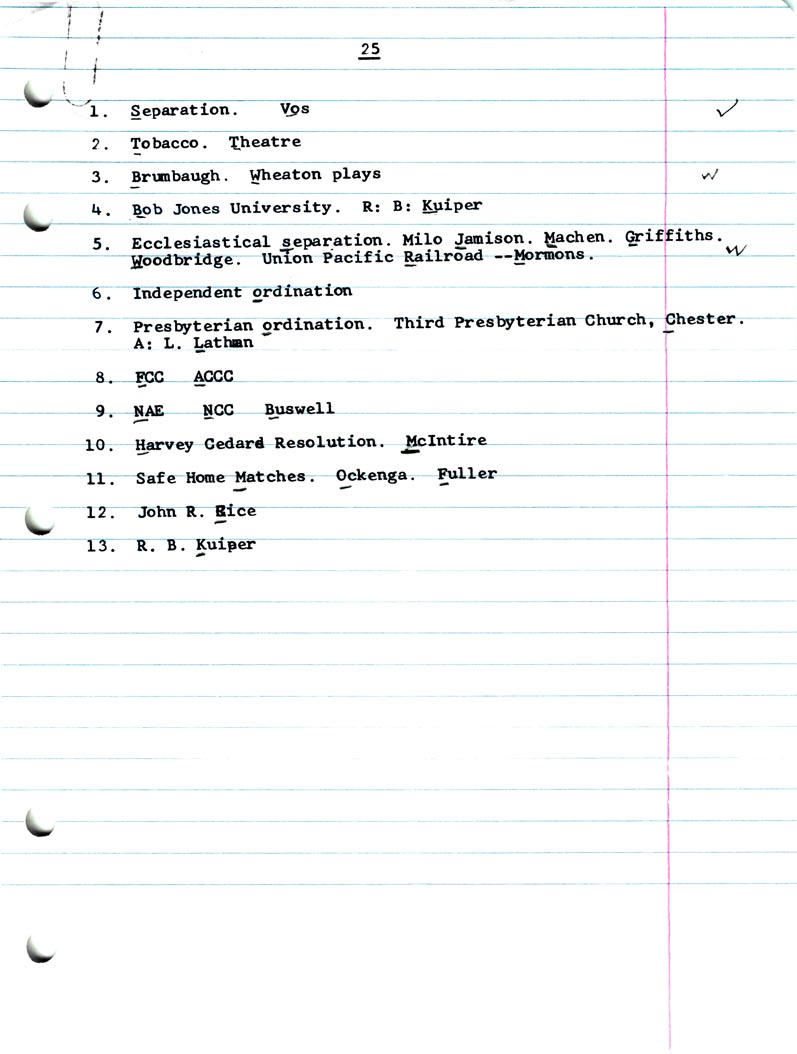 25
1. Separation. Vos
2. Tobacco. Theatre
3. Brumbaugh. Wheaton plays
4. Bob Jones University. R: B: Kuiper
5. Ecclesiastical separation. Milo Jamison. Machen. Griffiths.
Woodbridge. Union Pacific Railroad --Mormons.
6. Independent ordination
7. Presbyterian ordination. Third Presbyterian Church, Chester.
A: L. Latham
8. FCC ACCC
9. NAE NCC Buswell
10. Harvey Cedard Resolution. McIntire
11. Safe Home Matches. Ockenga. Fuller
12. John R. Rice
13. R. B. Kuiper